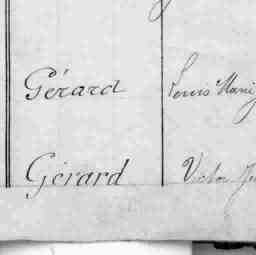 Gérard Louis Marie
Gérard Victor